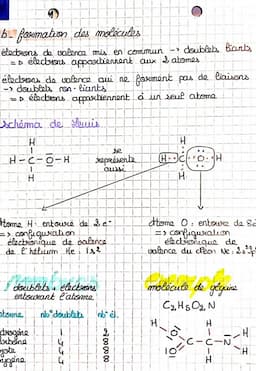 b- formation des molécules
électrons de valence mis en commun -> doublets liants
=> électrons appartiennent aux 2 atomes
électrons de valence qui ne forment pas de liaisons
-> doublets non-liants
=> électrons appartiennent à un seul atome
schéma de Lewis
H H
H - C - O - H se représente aussi H C O H
H H
Atome H: entouré de 2 e-
=> configuration
électronique de valence
de l'hélium He: 1s²
Atome O: entouré de 8 e
=> configuration
électronique de
valence du néon Ne: 2s²
doublets + électrons
entourant l'atome
exemple
molécule de glycine
C₂H₅O₂N
atome nb doublets nb él.
drogène 1 2
arbone 4 8
zote 4 8
xygène 4 8
H H H
O C - C - N
O H H